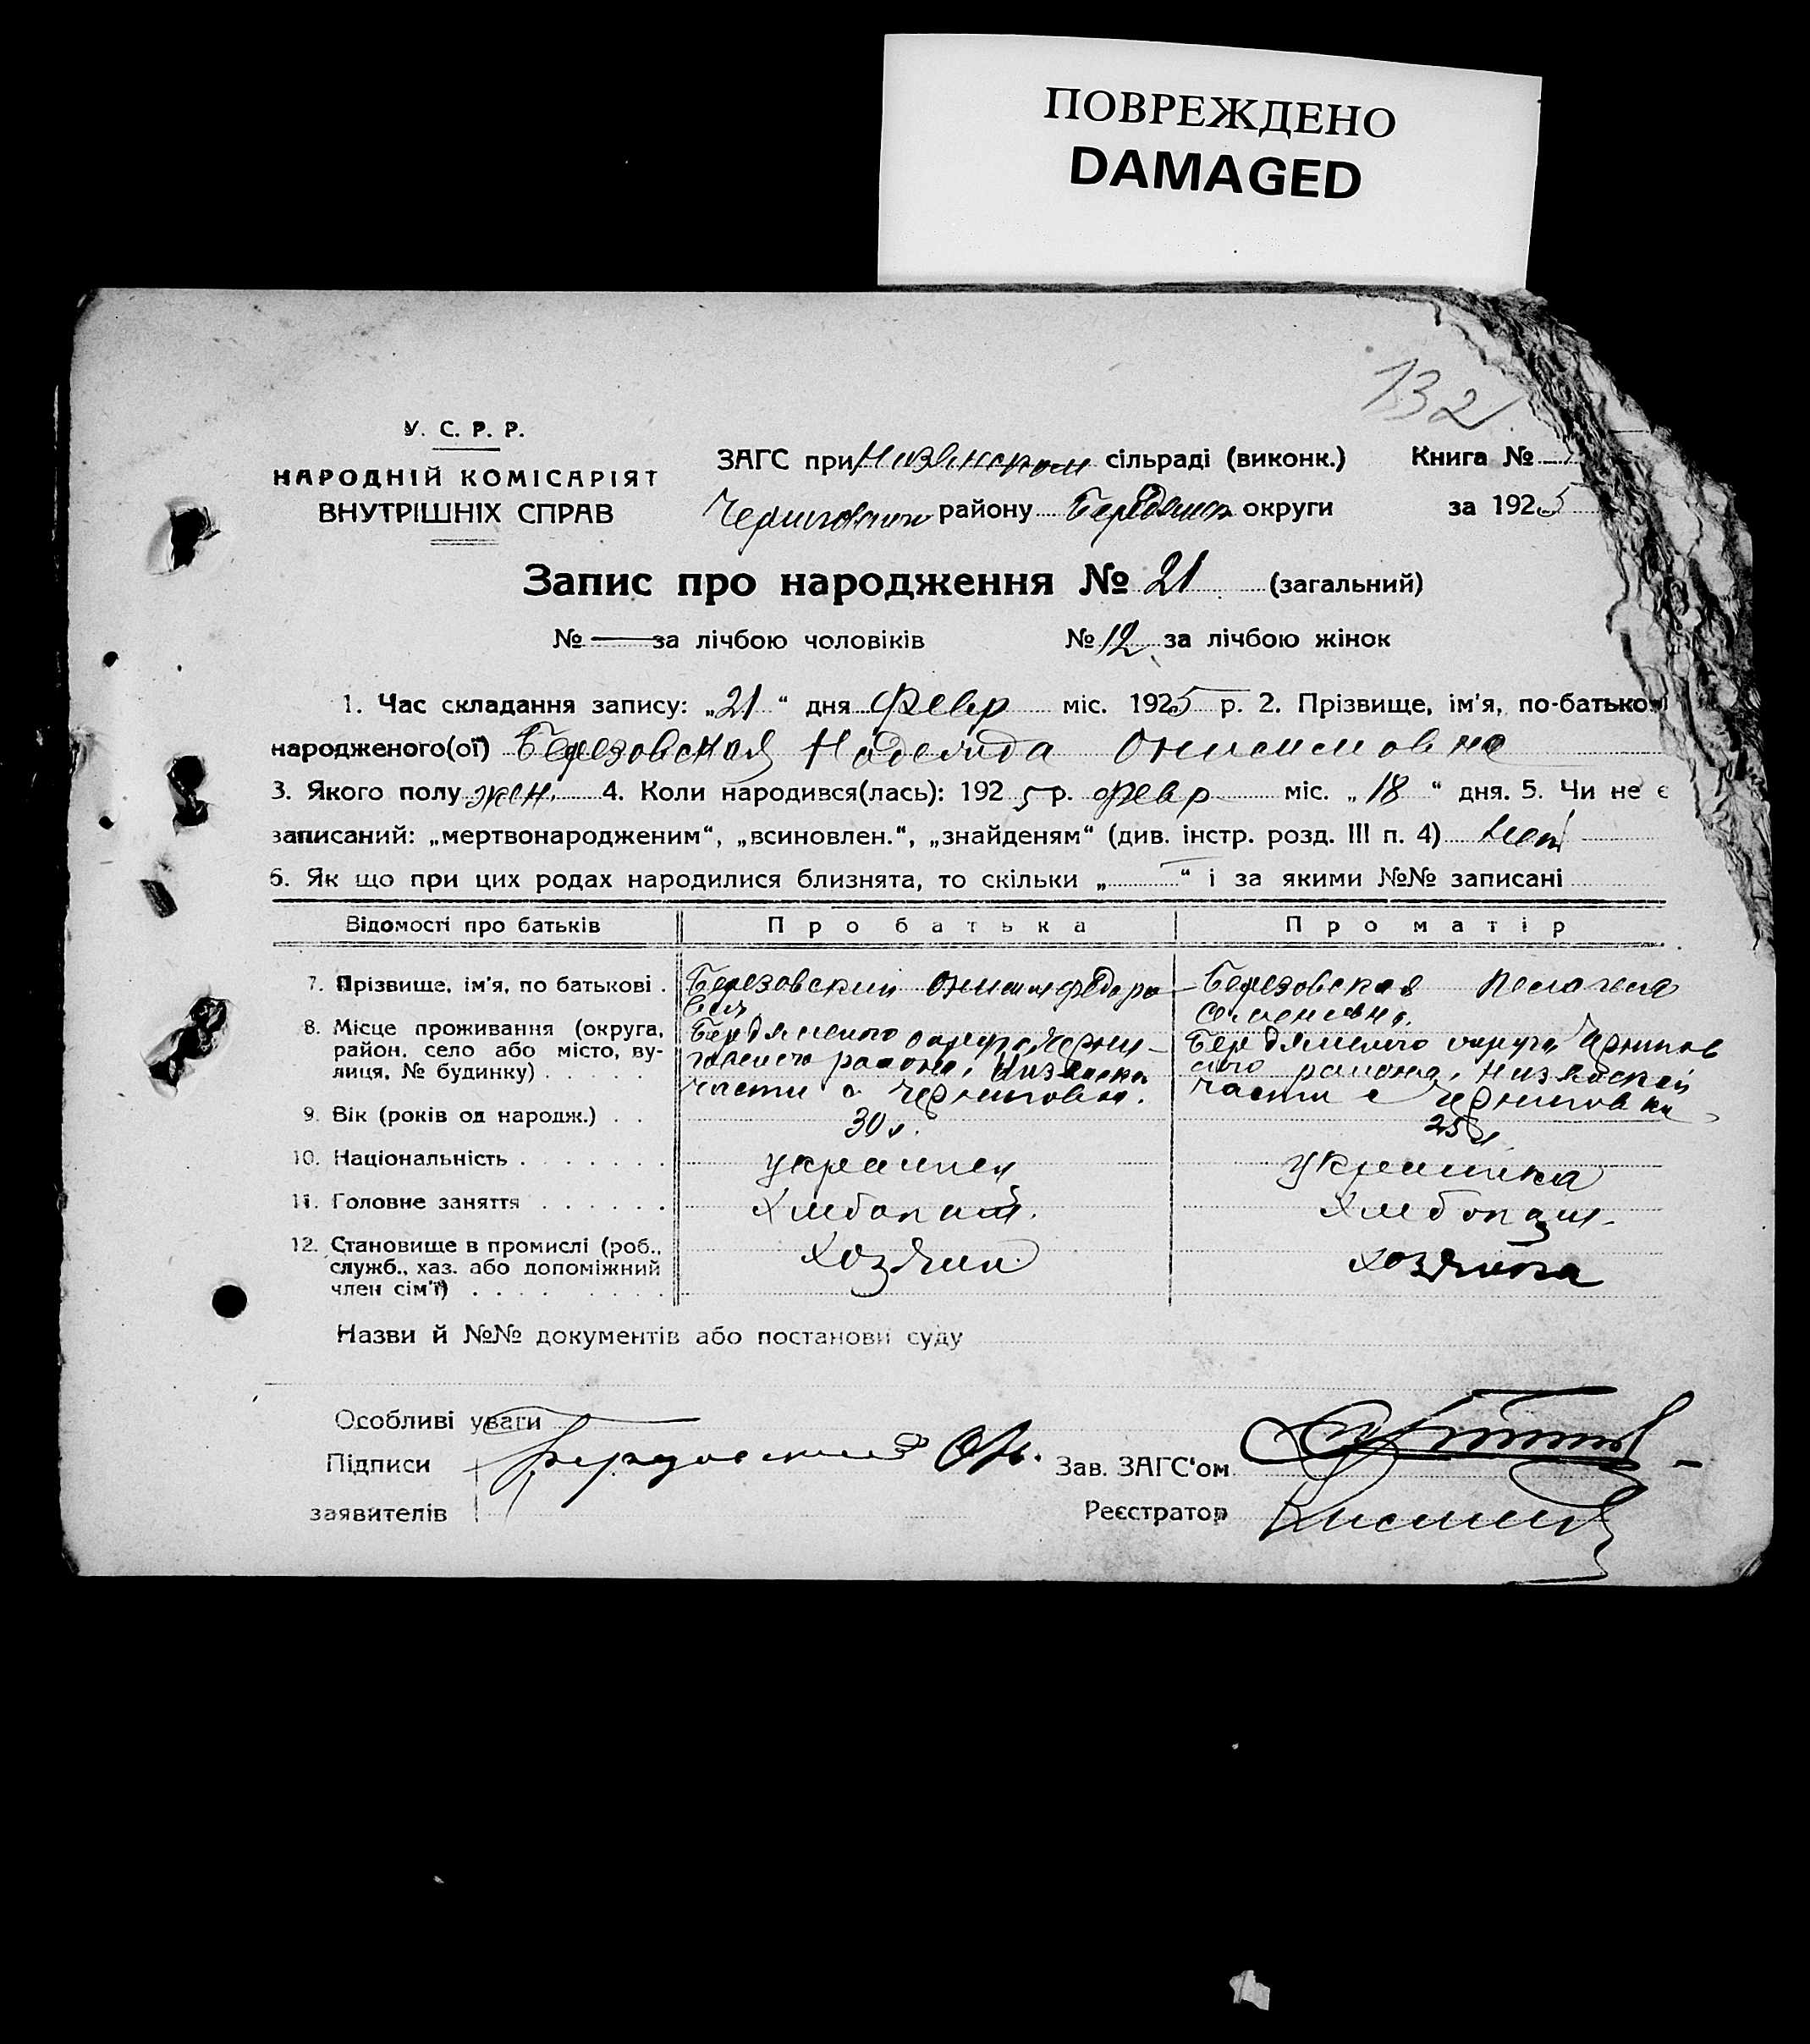 ПОВРЕЖДЕНО
DAMAGED
132
У. С. Р. Р.
НАРОДНІЙ КОМІСАРІЯТ
ВНУТРІШНІХ СПРАВ
ЗАГС при Низянском сільраді (виконк.) Книга №
Черниговского району Бердянск округи за 1925
Запис про народження № 21 (загальний)
№ — за лічбою чоловіків № 12 за лічбою жінок
1. Час складання запису: „21“ дня Февр міс. 1925 р. 2. Прізвище, ім'я, по-батькові
народженого(ої) Березовская Надежда Онисимовна
3. Якого полу жен. 4. Коли народився(лась): 1925 р. февр міс. „18“ дня. 5. Чи не є
записаний: „мертвонародженим“, „всиновлен.“, „знайденям“ (див. інстр. розд. III п. 4) нет
6. Як що при цих родах народилися близнята, то скільки „—“ і за якими №№ записані
Відомості про батьків Про батька Про матір
7. Прізвище, ім'я, по батькові . Березовский Онисим Федоро
вич
Березовская Пелагея
Семеновна.
8. Місце проживання (округа,
район, село або місто, ву-
лиця, № будинку) . . . . .
Бердянского округа, Черни-
говского района, Низянска
части с Черниговки.
Бердянского округа, Чернигов
ского района, Низянской
части с Черниговки
9. Вік (років од народж.) . . 30 л. 25 л.
10. Національність . . . . . . . украинец украинка
11. Головне заняття . . . . . . Хлебопаш. Хлебопаш.
12. Становище в промислі (роб.,
служб., хаз. або допоміжний
член сім'ї) . . . . . . . .
хозяин хозяйка
Назви й №№ документів або постанови суду
Особливі уваги
Підписи
заявителів
Березовский
Зав. ЗАГС'ом
Реєстратор